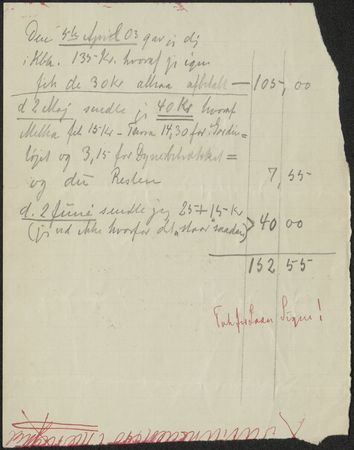 Den 5te April 03 gav jeg dig
i Kbh. 135 Kr. hvoraf jeg igen
fik de 30 Kr altsaa afbetalt — 105,00
d 2 Maj sendte jeg 40 Kr hvoraf
fik 15 Kr - 14,30 for
løjet og 3,15 for =
og du Resten 7,55
d. 2 Juni sendte jeg 25 + 15 Kr
(jeg ved ikke hvorfor det staar saadan) > 40 00
152 55
Tak for Laan Signe!